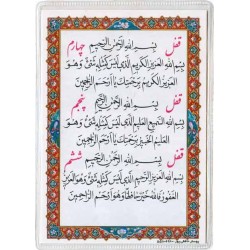 قفل بِسْمِ اللهِ الرَّحْمٰنِ الرَّحِيمِ چهارم
بِسْمِ اللهِ الْعَزِيزِ الْكَرِيمِ الَّذِي لَيْسَ كَمِثْلِهِ شَيْءٌ وَهُوَ
الْعَزِيزُ الْكَرِيمُ بِرَحْمَتِكَ يَا أَرْحَمَ الرَّاحِمِينَ
قفل بِسْمِ اللهِ الرَّحْمٰنِ الرَّحِيمِ پنجم
بِسْمِ اللهِ السَّمِيعِ الْعَلِيمِ الَّذِي لَيْسَ كَمِثْلِهِ شَيْءٌ وَهُوَ
الْعَلِيمُ الْخَبِيرُ بِرَحْمَتِكَ يَا أَرْحَمَ الرَّاحِمِينَ
قفل بِسْمِ اللهِ الرَّحْمٰنِ الرَّحِيمِ ششم
بِسْمِ اللهِ الْعَزِيزِ الرَّحِيمِ الَّذِي لَيْسَ كَمِثْلِهِ شَيْءٌ وَهُوَ الْعَزِيزُ
الْغَفُورُ فَاللهُ خَيْرٌ حَافِظًا وَهُوَ أَرْحَمُ الرَّاحِمِينَ